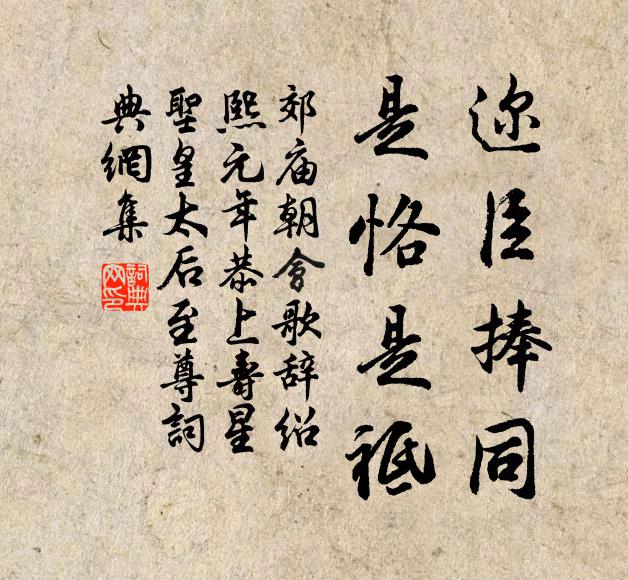 迩臣捧同
是恪是祗
郊庙朝会歌辞绍
熙元年恭上壽星
聖皇太后至尊詞
典網集
詞典网印